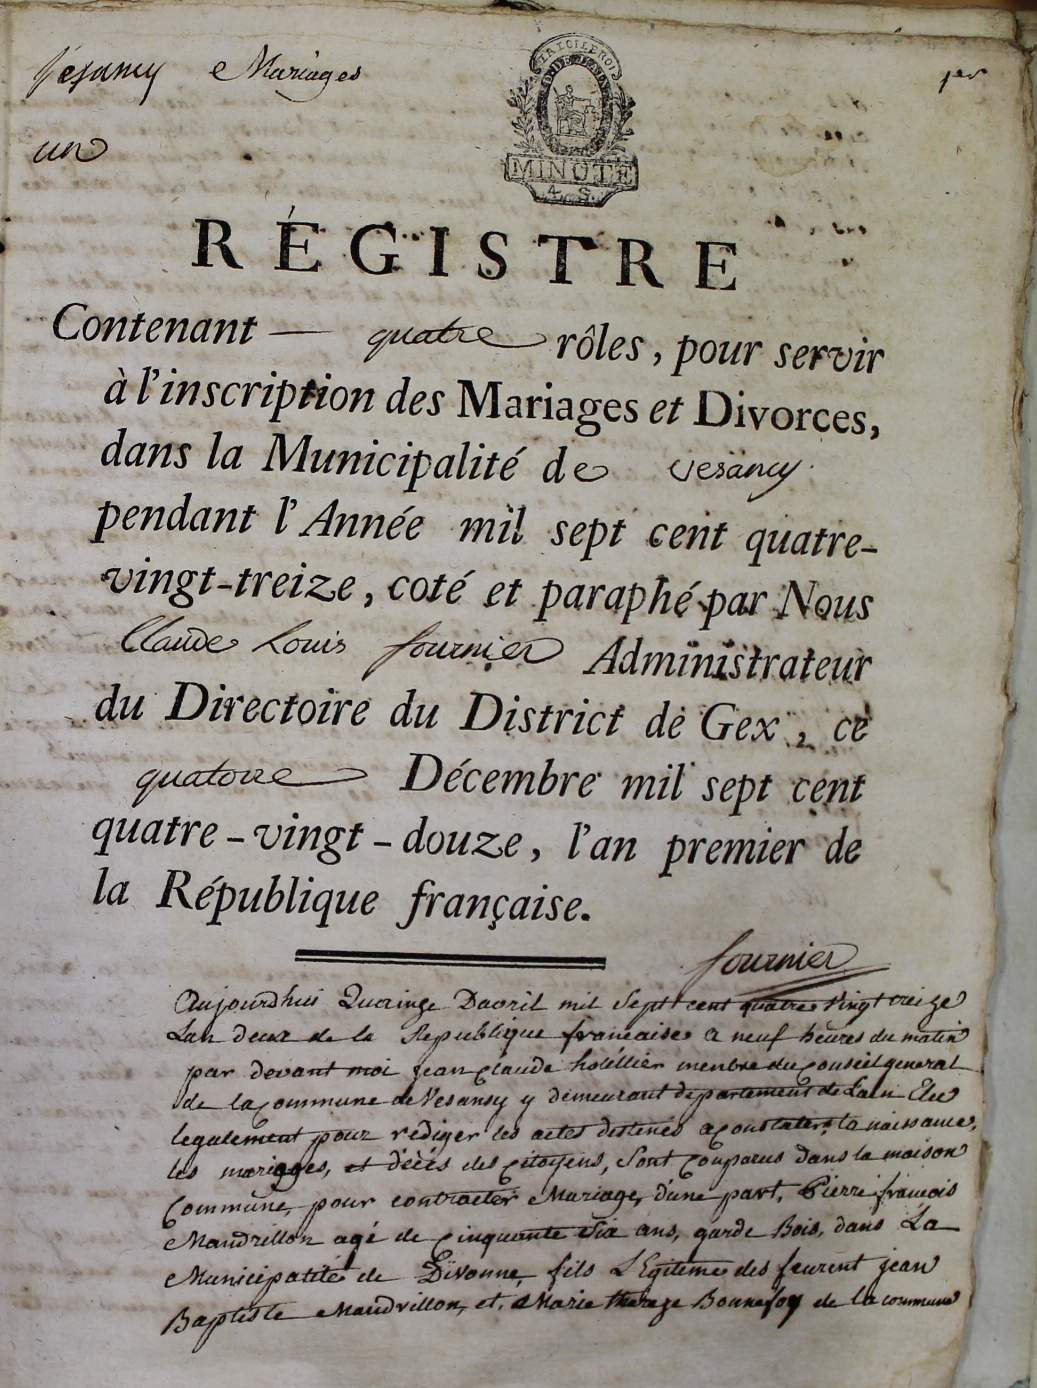 Vesancy Mariages
1er
un
LA LOI LE ROI
MINUTE
4. S.
RÉGISTRE
Contenant — quatre rôles, pour servir
à l'inscription des Mariages et Divorces,
dans la Municipalité de Vesancy.
pendant l'Année mil sept cent quatre-
vingt-treize, coté et paraphé par Nous
Claude Louis fournier Administrateur
du Directoire du District de Gex, ce
quatorze Décembre mil sept cent
quatre-vingt-douze, l'an premier de
la République française.
fournier
Aujourdhui Quainze Davril mil Sept cent quatre Vingt treize
Lan deux de la Republique francaise a neuf heures du matin
par devant moi jean claude hotellier menbre du conseil general
de la commune de Vesansy y demeurant departement de Lain Elu
legalement pour rédiger les actes destinés a constater la naissance,
les mariages, et décès des citoyens, Sont conparus dans la maison
Commune, pour contracter Mariage, d'une part, Pierre francois
Mandrillon agé de cinquante Six ans, garde Bois, dans La
Municipatité de Divonne, fils LEgitime des feurent jean
Baptiste Mandrillon, et, Marie thereze Bonnefoy de la commune